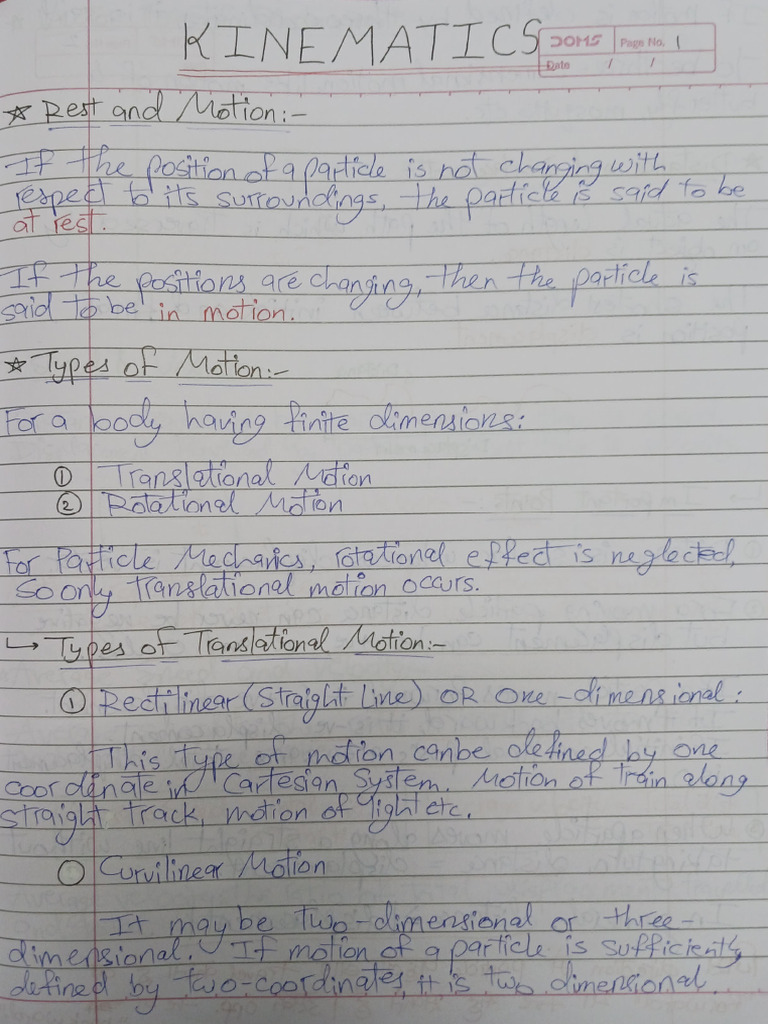 KINEMATICS
DOMS Page No. 1
Date / /
☆ Rest and Motion:-
If the position of a particle is not changing with
respect to its surroundings, the particle is said to be
at rest.
If the positions are changing, then the particle is
said to be in motion.
☆ Types of Motion:-
For a body having finite dimensions:
① Translational Motion
② Rotational Motion
For Particle Mechanics, rotational effect is neglected,
so only translational motion occurs.
↳ Types of Translational Motion:-
① Rectilinear (Straight Line) OR One-dimensional:
This type of motion canbe defined by one
coordenate in Cartesian System. Motion of train along
straight track, motion of light etc.
○ Curvilinear Motion
It may be two-dimensional or three-
dimensional. If motion of a particle is sufficiently
defined by two-coordinates, it is two dimensional.